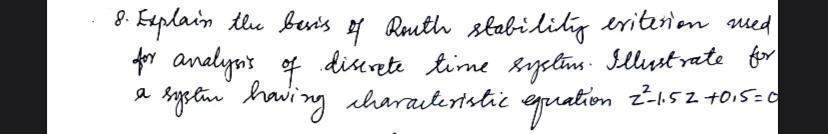 8. Explain the basis of Routh stability criterion used
for analysis of discrete time systems. Illustrate for
a system having characteristic equation z²-1.5z+0.5=0